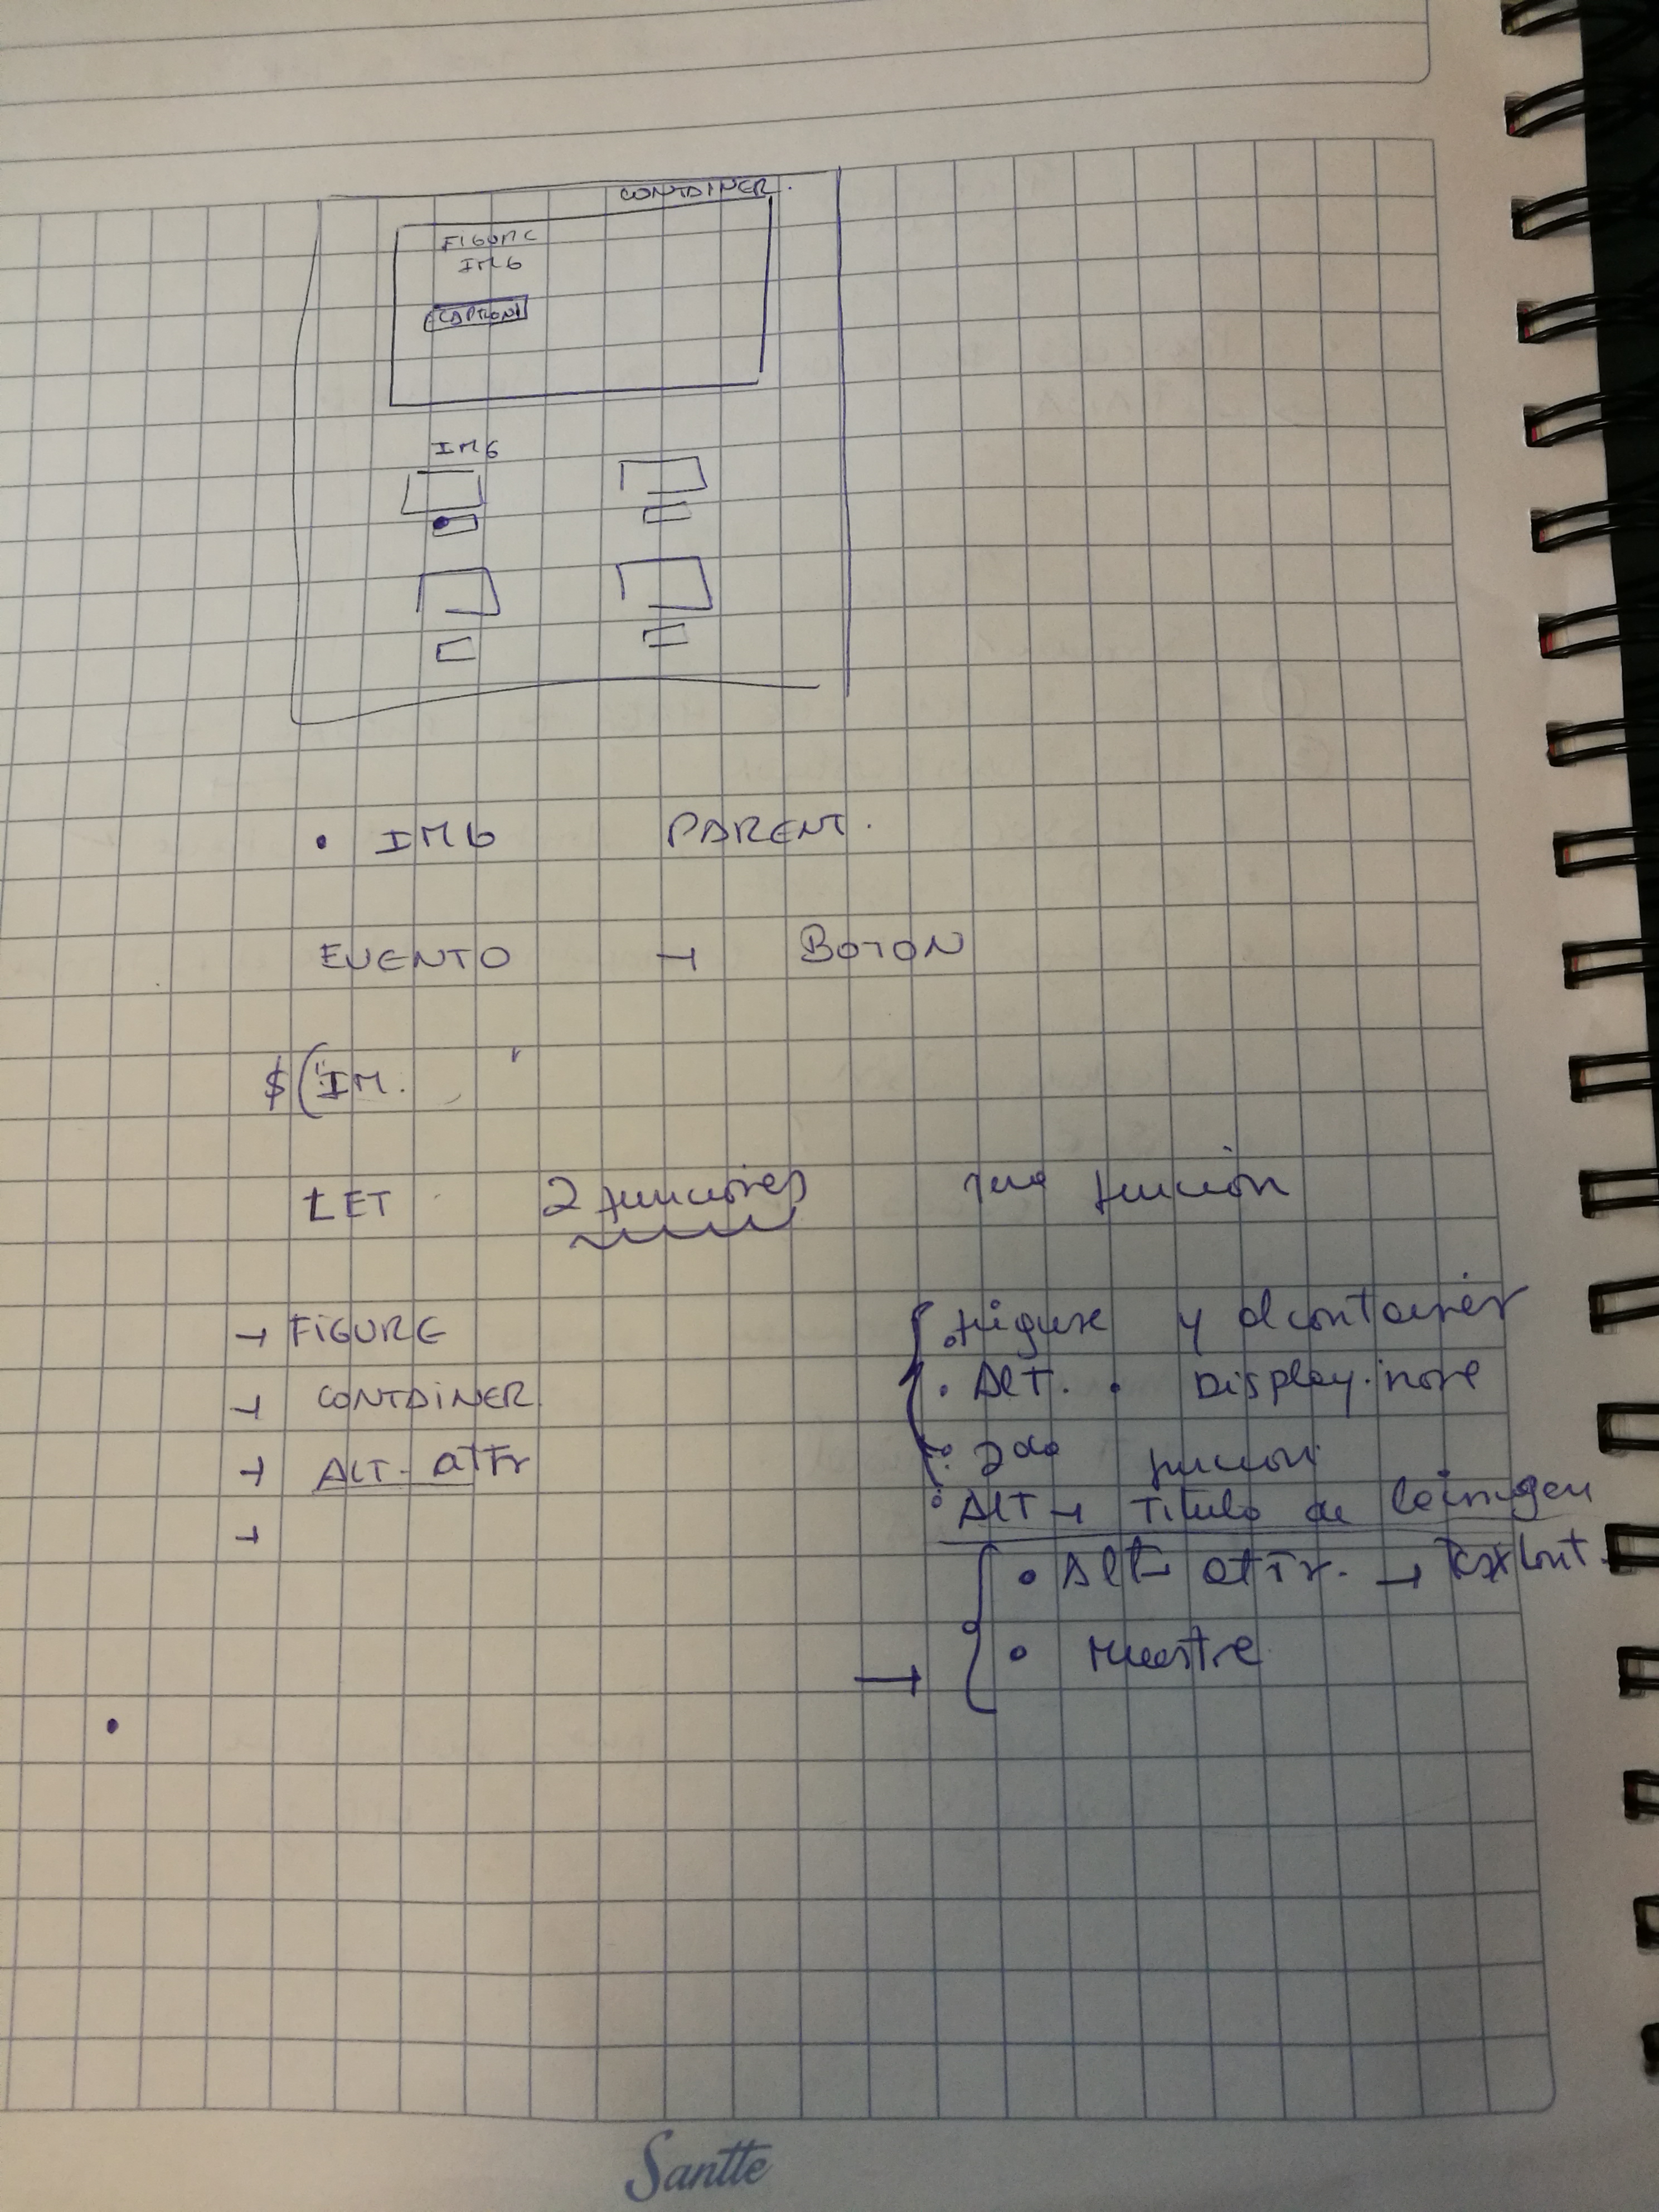 CONTAINER.
FIGURE
IMG
CAPTION
IMG
• IMG PARENT.
EVENTO → BOTON
$("IM. '
LET 2 funciones 1era función
→ FIGURE
→ CONTAINER
→ ALT - attr
→
• figure y el container
• Alt. • Display.none
• 2da funcion
• ALT → Titulo de la imagen
• Alt attr. → text cont.
• Muestre
Santte